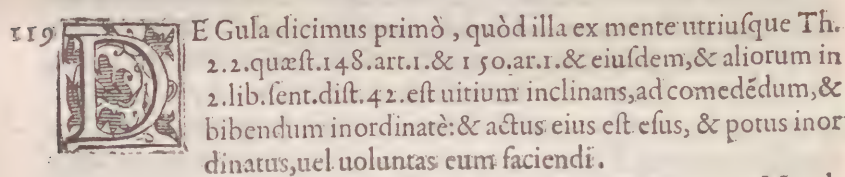 119 DE Gula dicimus primò, quòd illa ex mente utriuſque Th.
2.2.quæſt.148.art.1.& 150.ar.1.& eiuſdem,& aliorum in
2.lib.ſent.diſt.42.eſt uitium inclinans,ad comedédum,&
bibendum inordinatè:& actus eius eſt eſus, & potus inor
dinatus,uel uoluntas eum faciendi.